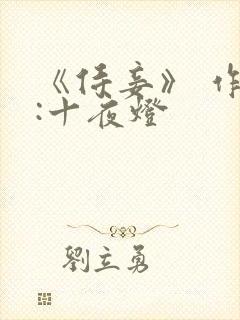 《侍妾》 作
:十夜燈
劉立勇